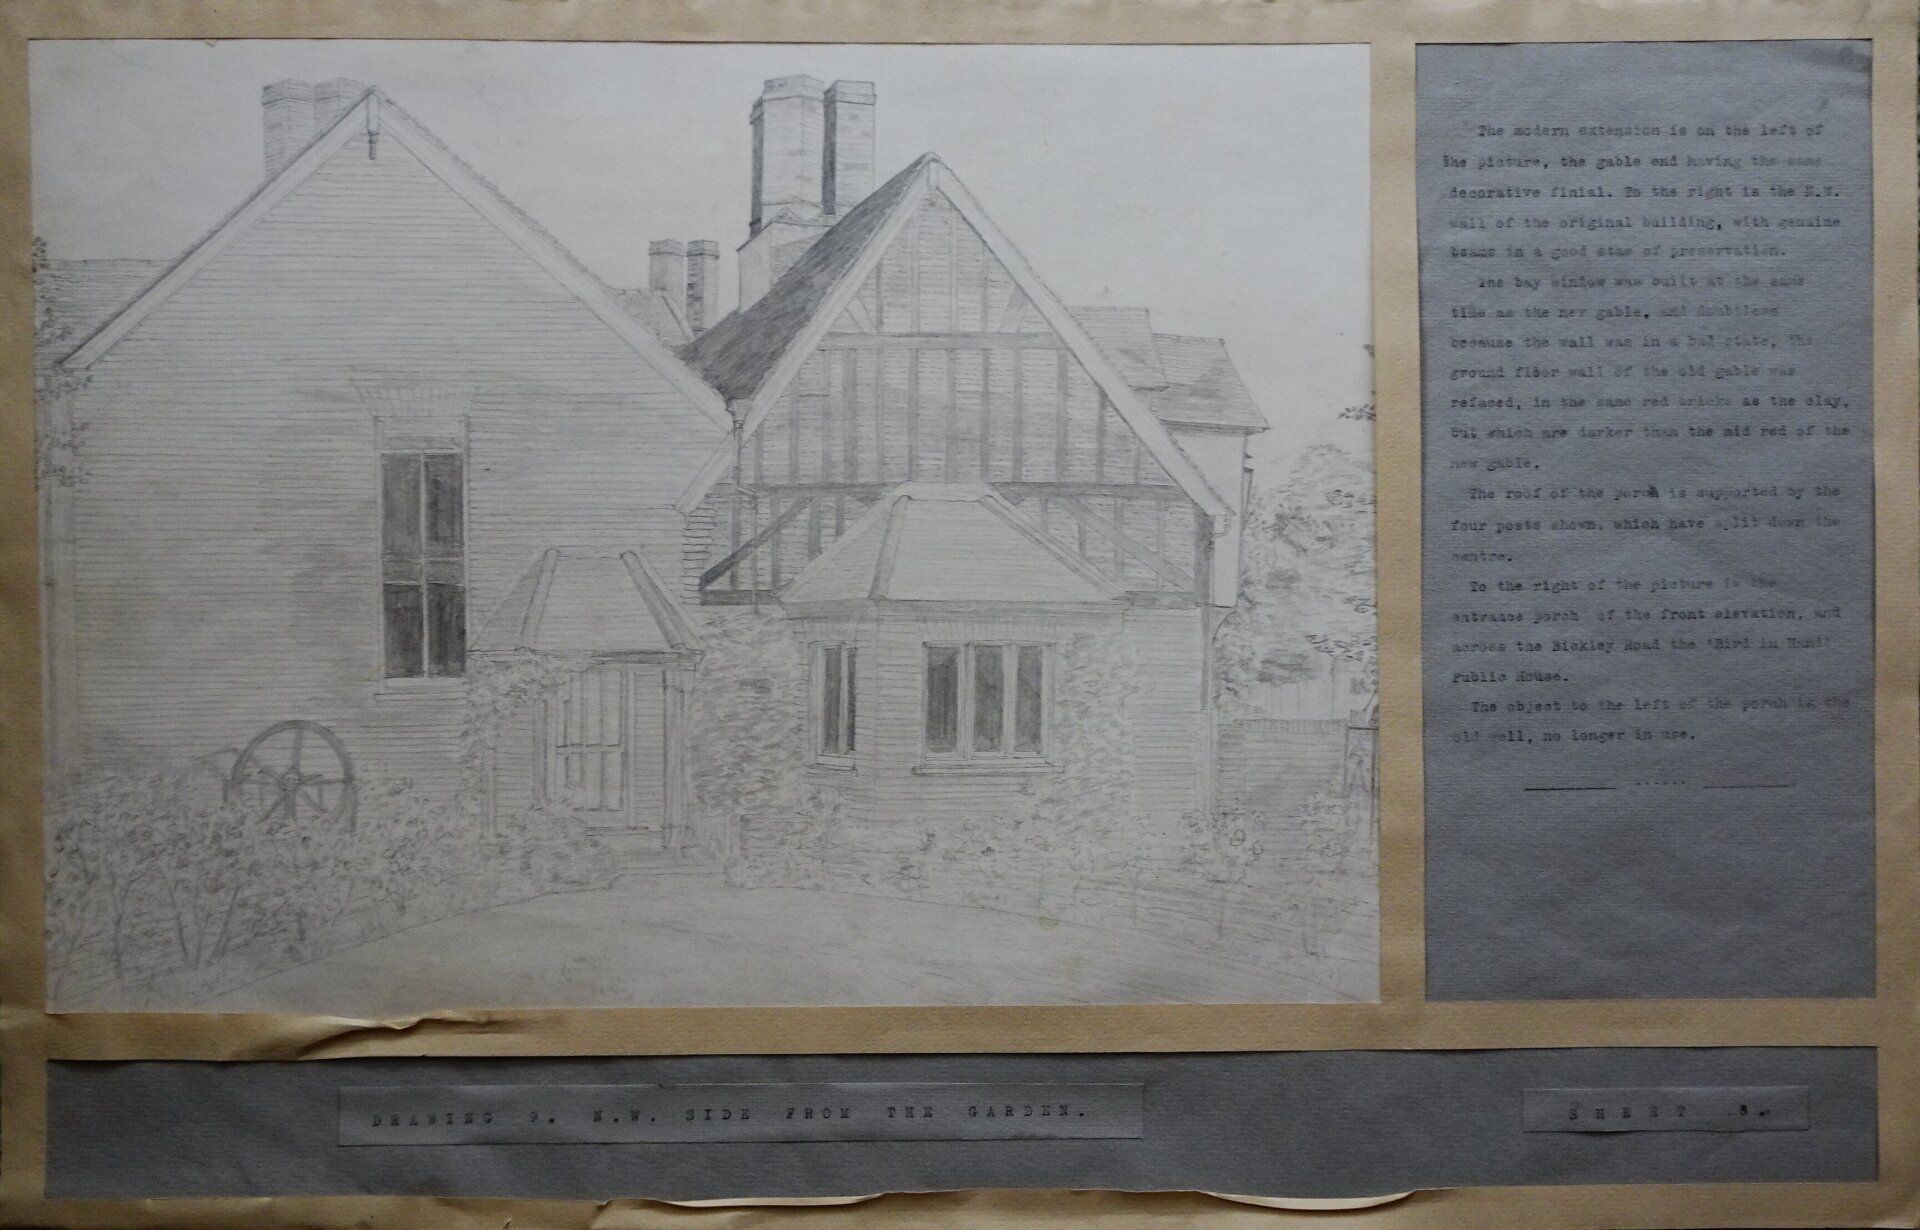 The modern extension is on the left of
the picture, the gable end having the same
decorative finial. To the right is the N.W.
wall of the original building, with genuine
beams in a good stae of preservation.
The bay window was built at the same
time as the new gable, and doubtless
because the wall was in a bad state, the
ground floor wall of the old gable was
refaced, in the same red bricks as the
but which are darker than the mid red of the
new gable.
The roof of the porch is supported by the
four posts shown, which have split down the
centre.
To the right of the picture is the
entrance porch of the front elevation, and
across the Bickley Road the 'Bird in Hand'
Public House.
The object to the left of the porch is the
old well, no longer in use.
DRAWING 9. N.W. SIDE FROM THE GARDEN.
SHEET 8.